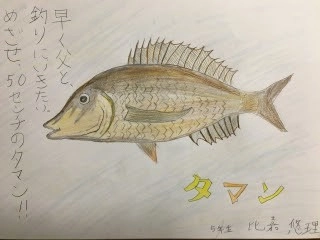 早く父と、
釣りにいきたい
めざせ、50センチのタマン!!
タマン
5年生 比嘉 悠理